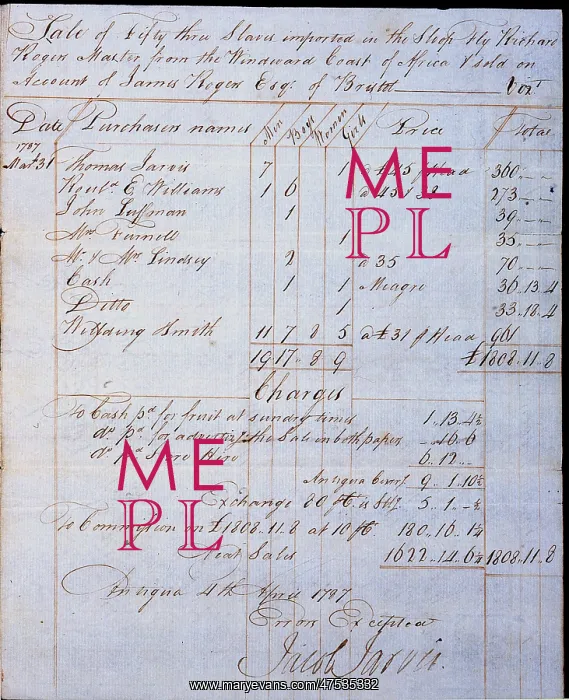 Sale of Fifty three Slaves imported in the Sloop Fly Richard
Rogers Master from the Windward Coast of Africa & sold on
Account of James Rogers Esqr. of Bristol
Date Purchasers names Men Boys Women Girls Price Total
1787
Mar 31 Thomas Jarvis 7 1 a £45 ⅌ Head 360
E Williams 1 6 273
John Luffman 1 39
Mrs Furnell 1 35
Mr. & Mrs. Lindsey 2 a 35 70
Cash 1 1 Meagre 36.13.4
Ditto 1 33.18.4
Smith 11 7 8 5 a £31 ⅌ Head 961
19 17 8 9 £1808.11.8
Charges
To Cash pd. for fruit at sundry times 1.13.4½
do. pd. for the Sale in both papers
do. pd. Hire 6.12
Antigua Curry. 9.1.10½
Exchange 80 ⅌Ct. is Stg. 5.1.-½
To Commission on £1808.11.8 at 10 ⅌Ct 180.16.1¼
Neat Sales 1622.14.6¼ 1808.11.8
Antigua 4th April 1787
Errors Excepted
Jacob Jarvis.
ME
PL
ME
PL
www.maryevans.com/47535332